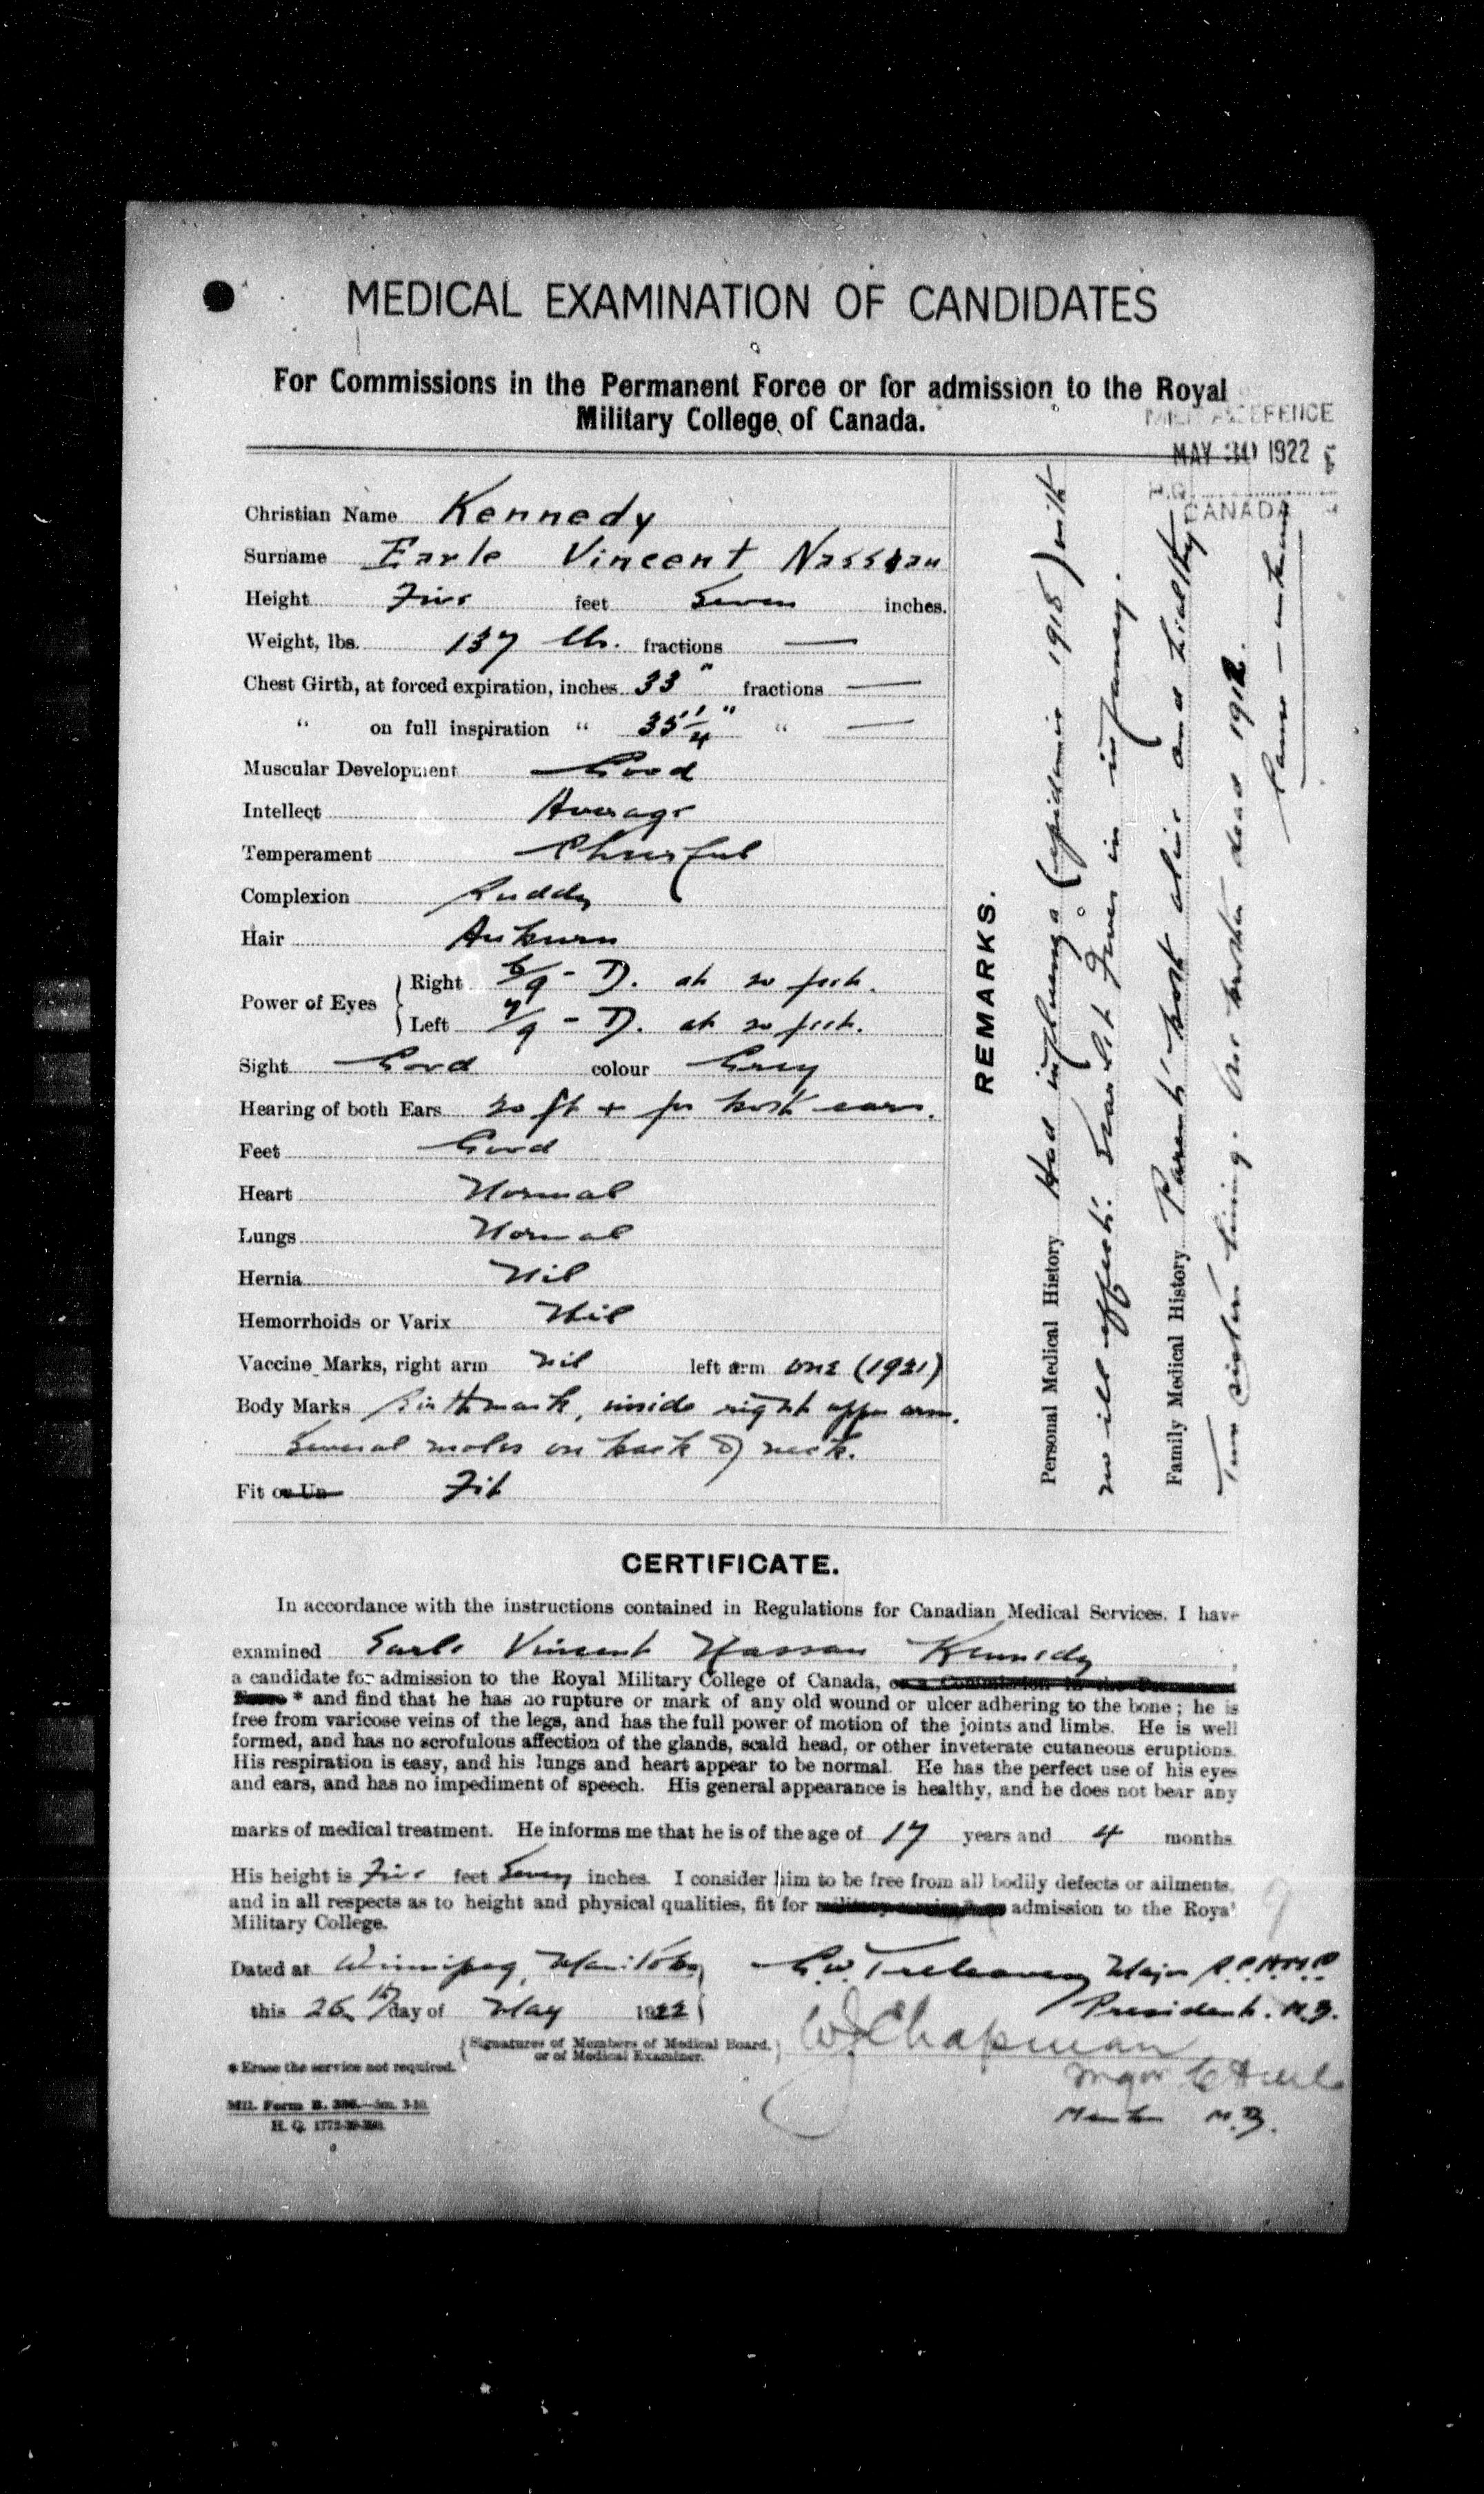 MEDICAL EXAMINATION OF CANDIDATES
For Commissions in the Permanent Force or for admission to the Royal
Military College of Canada.
DEFENCE
MAY 30 1922
H.Q.
CANADA
Christian Name Kennedy
Surname Earle Vincent Nassau
Height Five feet Seven inches.
Weight, lbs. 137 lb. fractions —
Chest Girth, at forced expiration, inches 33" fractions —
" on full inspiration " 35 1/4" " —
Muscular Development Good
Intellect Average
Temperament Cheerful
Complexion Ruddy
Hair Auburn
Power of Eyes Right 6/9 - D. at 20 feet.
Left 7/9 - D. at 20 feet.
Sight Good colour Grey
Hearing of both Ears 20 ft + for both ears.
Feet Good
Heart Normal
Lungs Normal
Hernia Nil
Hemorrhoids or Varix Nil
Vaccine Marks, right arm nil left arm one (1921)
Body Marks Birthmark, inside right upper arm.
Several moles on back of neck.
Fit or Un Fit
REMARKS.
Personal Medical History Had influenza (epidemic 1918) with
no ill effects. Scarlet Fever in infancy.
Family Medical History Parents both alive and healthy
Two sisters living. One brother dead 1912.
Cause — unknown
CERTIFICATE.
In accordance with the instructions contained in Regulations for Canadian Medical Services. I have
examined Earle Vincent Nassau Kennedy,
a candidate for admission to the Royal Military College of Canada, or a Commission in the Permanent
Force * and find that he has no rupture or mark of any old wound or ulcer adhering to the bone; he is
free from varicose veins of the legs, and has the full power of motion of the joints and limbs. He is well
formed, and has no scrofulous affection of the glands, scald head, or other inveterate cutaneous eruptions.
His respiration is easy, and his lungs and heart appear to be normal. He has the perfect use of his eyes
and ears, and has no impediment of speech. His general appearance is healthy, and he does not bear any
marks of medical treatment. He informs me that he is of the age of 17 years and 4 months
His height is Five feet Seven inches. I consider him to be free from all bodily defects or ailments,
and in all respects as to height and physical qualities, fit for admission to the Royal
Military College.
Dated at Winnipeg, Manitoba
this 26th day of May 1922
G.W. Treleaven Major R.C.A.M.C.
President. M.B.
(Signatures of Members of Medical Board.
or of Medical Examiner.
W Chapman
Major C.A.M.C.
Member M.B.
* Erase the service not required.
Mil. Form B.
H. Q. 1772-39-